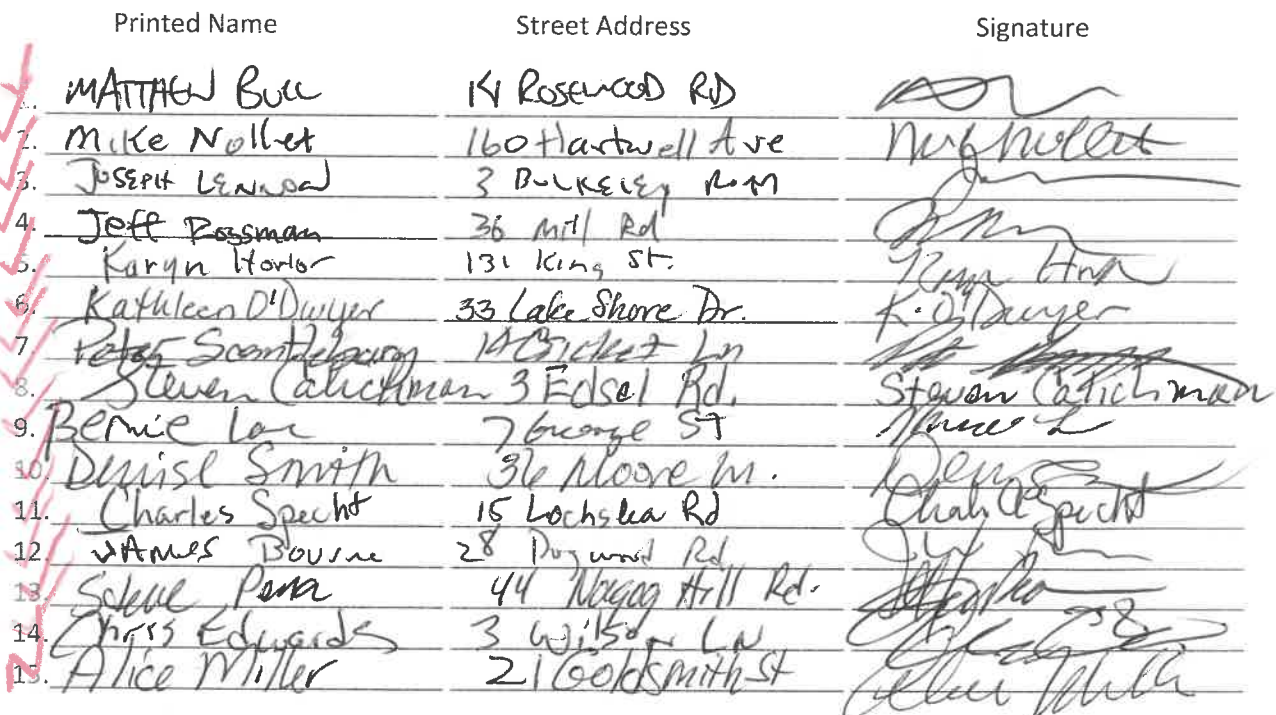 Printed Name Street Address Signature
1. MATTHEW BULL 14 ROSEWOOD RD
2. Mike Nollet 160 Hartwell Ave Mike Nollet
3. JOSEPH LENNON 3 BULKELEY ROAD
4. Jeff Rossman 36 Mill Rd
5. Karyn Horlor 131 King St.
6. Kathleen O'Dwyer 33 Lake Shore Dr. K. O'Dwyer
7. Peter 14 Cricket Ln
8. Steven Calichman 3 Edsel Rd. Steven Calichman
9. Bernie 7 George ST
10. Denise Smith 36 Moore Ln.
11. Charles Specht 15 Lochslea Rd Charles A Specht
12. JAMES Bourne 28 Dogwood Rd
13. Steve Pena 44 Nagog Hill Rd.
14. Chris Edwards 3 Wilson LN
15. Alice Miller 21 Goldsmith St Alice Miller